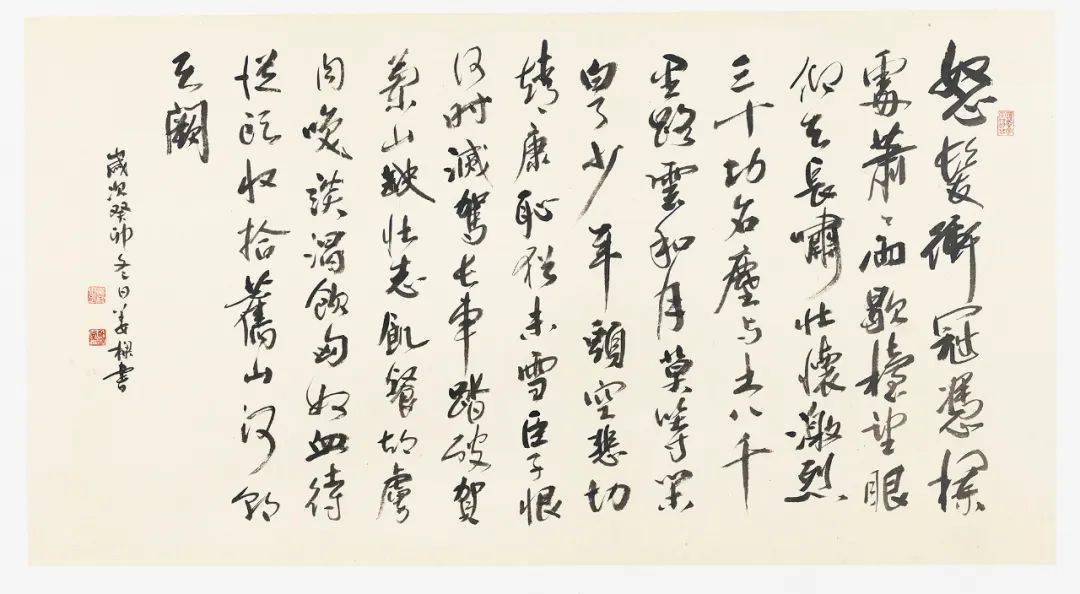 怒髮衝冠憑欄
處蕭〻雨歇擡望眼
仰天長嘯壯懷激烈
三十功名塵与土八千
里路雲和月莫等閑
白了少年頭空悲切
靖康恥猶未雪臣子恨
何時滅駕長車踏破賀
蘭山缺壯志飢餐胡虜
肉笑談渴飲匈奴血待
從頭收拾舊山河朝
天闕
歲次癸卯冬日姜書